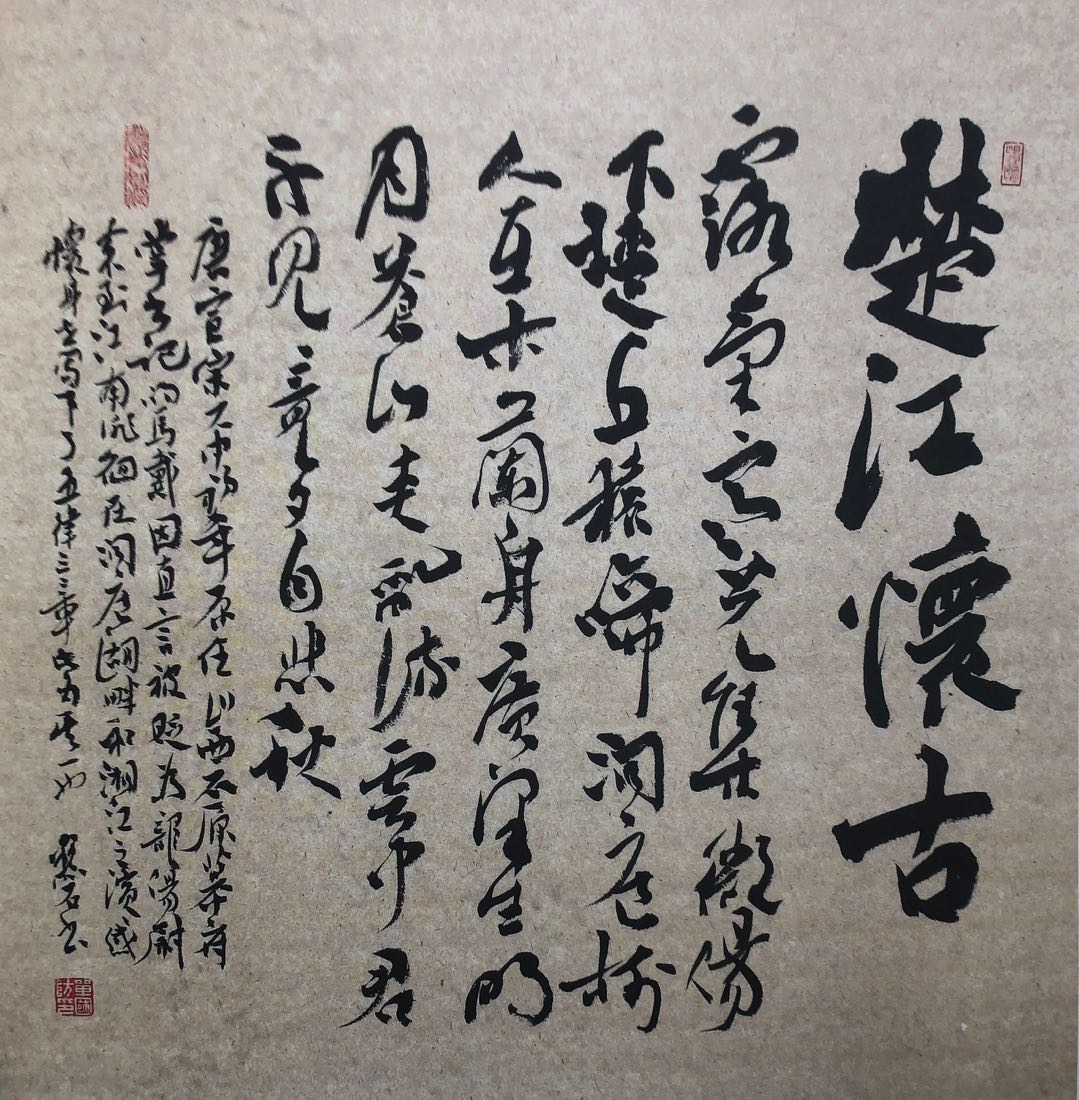 楚江懷古
露氣寒光集微陽
下楚丘猿啼洞庭树
人在木蘭舟廣澤生明
月蒼山夾亂流雲中君
不見竟夕自悲秋
唐宣宗大中初年原任山西太原幕府
掌書记的馬戴因直言被貶为龍陽尉
来到江南徘徊在洞庭湖畔和湘江之濱感
懷身世寫下了五律三章此为其一也 书
單國防印